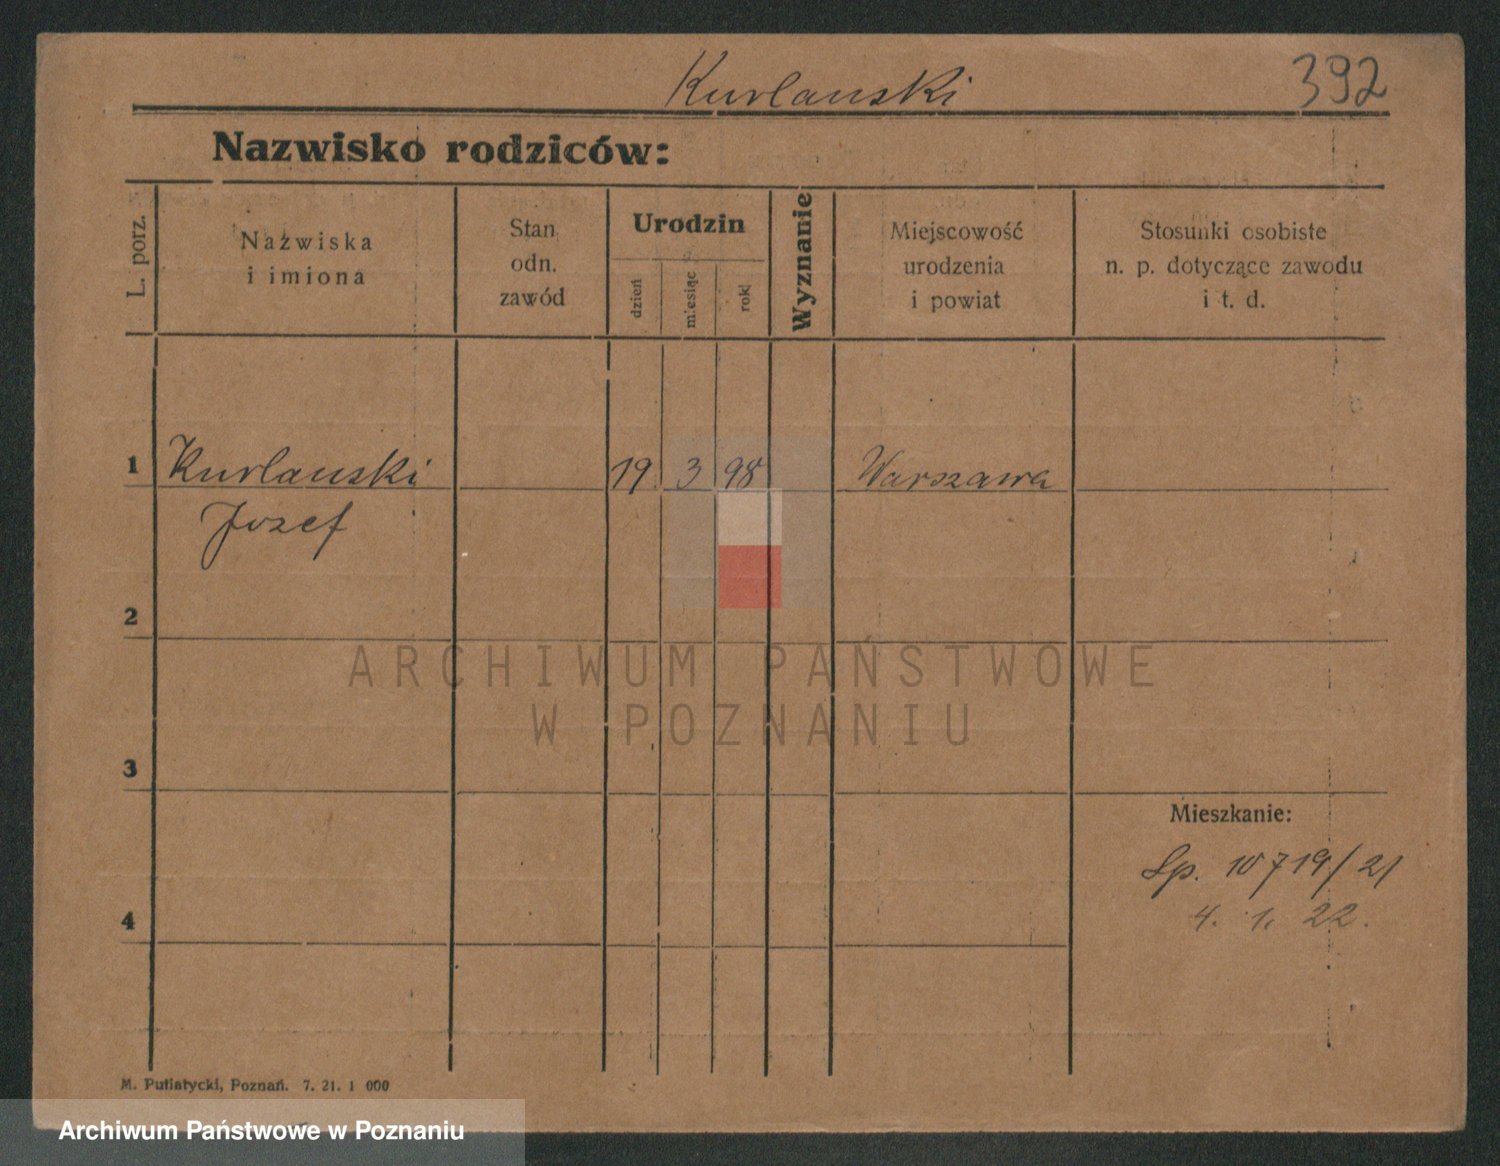 Kurlanski 392
Nazwisko rodziców:
L. porz.
Nazwiska
i imiona
Stan
odn.
zawód
Urodzin
dzień
miesiąc
rok
Wyznanie
Miejscowość
urodzenia
i powiat
Stosunki osobiste
n. p. dotyczące zawodu
i t. d.
1 Kurlanski 19 3 98 Warszawa
Jozef
2
ARCHIWUM PAŃSTWOWE
W POZNANIU
3
Mieszkanie:
Sp. 10719/21
4. 1. 22.
4
M. Putiatycki, Poznań. 7. 21. 1 000
Archiwum Państwowe w Poznaniu